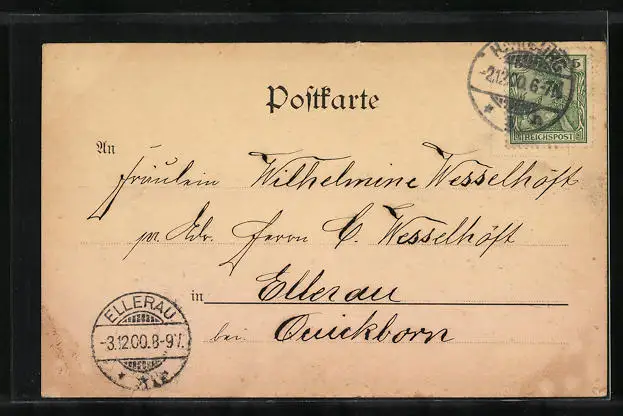 Postkarte
HAMBURG
-2.12.00. 6-7N.
5
REICHSPOST
An
Fräulein Wilhelmine Wesselhöft
pr. Adr. Herrn C. Wesselhöft
in Ellerau
bei Quickborn
ELLERAU
-3.12.00.8-9V.